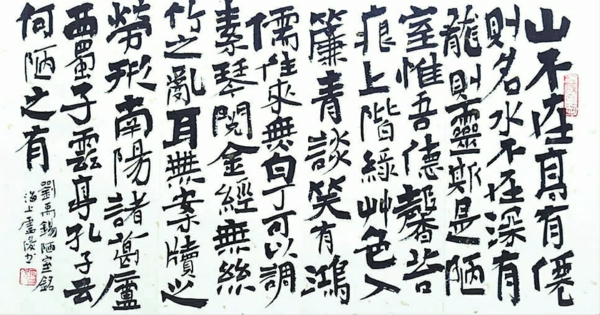 山不在高有僊
則名水不在深有
龍則靈斯是陋
室惟吾德馨苔
痕上階綠艸色入
簾青談笑有鴻
儒往来無白丁可以調
素琴閱金經無絲
竹之亂耳無案牘之
勞形南陽諸葛廬
西蜀子雲亭孔子云
何陋之有
劉禹錫陋室銘
海上盧